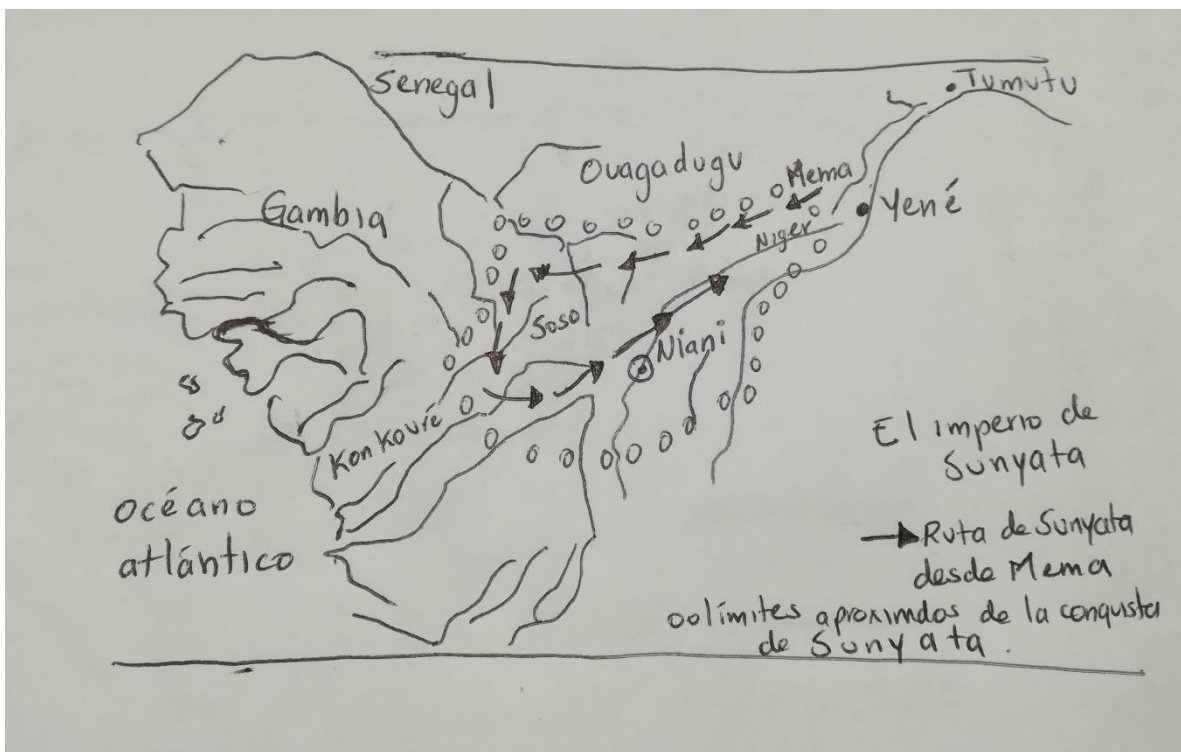 Senegal
Tumutu
Ouagadugu
Mema
Yené
Gambia
Niger
Soso
Niani
Konkouré
océano
atlántico
El imperio de
Sunyata
Ruta de Sunyata
desde Mema
oolímites aproximdos de la conquista
de Sunyata.